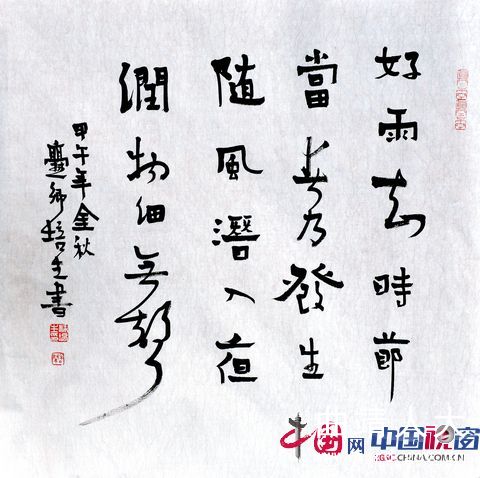 好雨知時節
當春乃發生
随風潛入夜
潤物細無聲
甲午年金秋
鄉培生書
中国网 中国视窗
CHINA.COM.CN